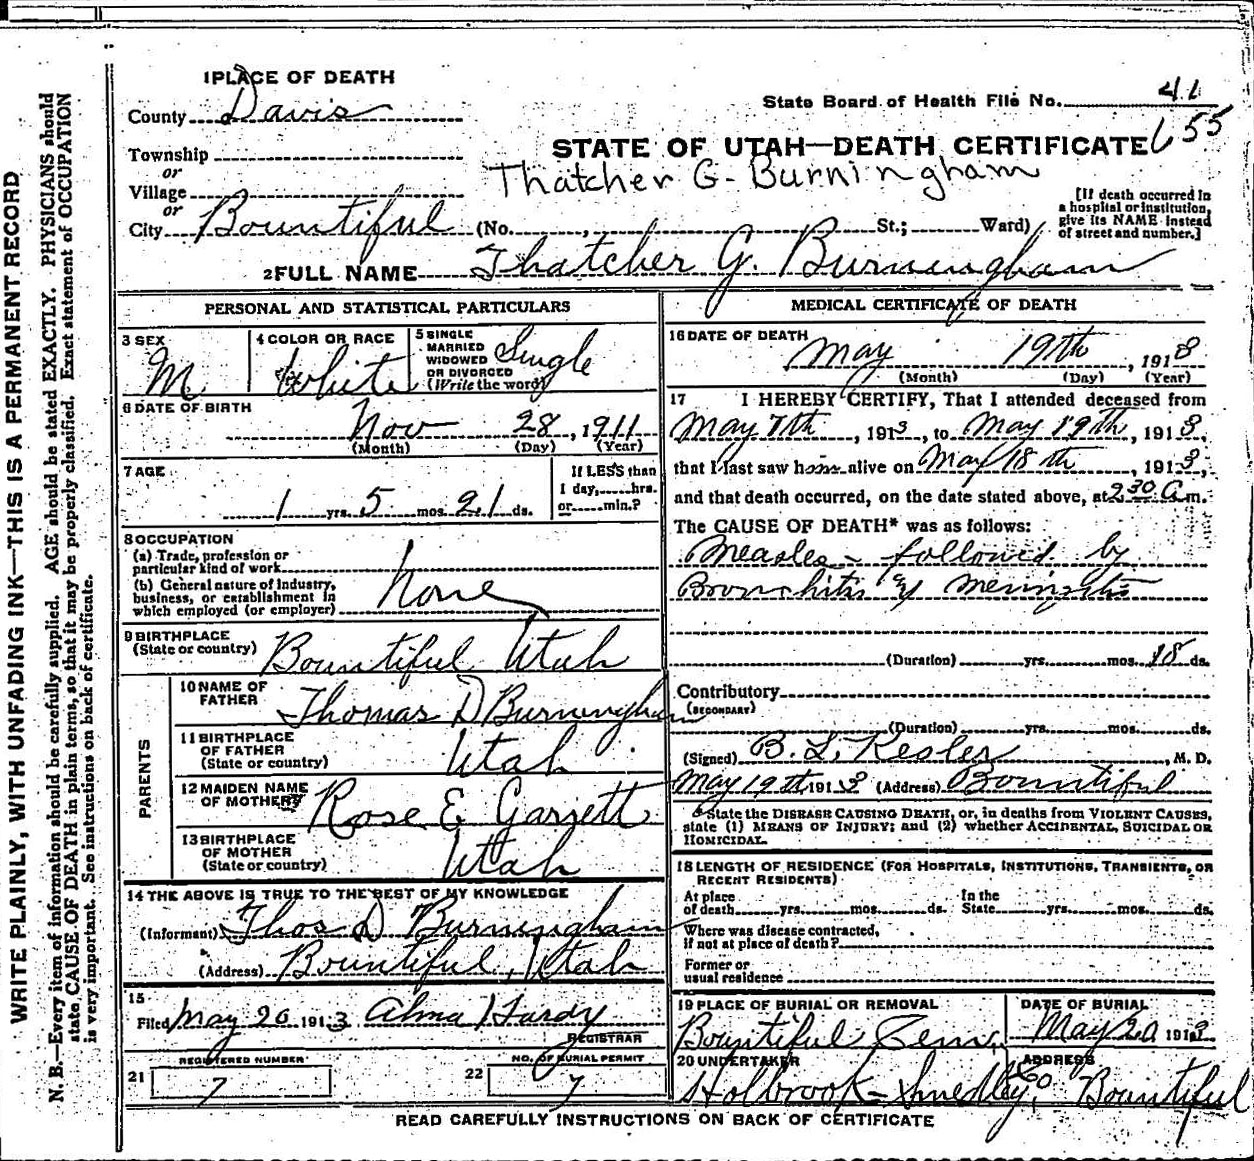 WRITE PLAINLY, WITH UNFADING INK—THIS IS A PERMANENT RECORD
N. B.—Every item of information should be carefully supplied. AGE should be stated EXACTLY. PHYSICIANS should
state CAUSE OF DEATH in plain terms, so that it may be properly classified. Exact statement of OCCUPATION
is very important. See instructions on back of certificate.
1 PLACE OF DEATH
County Davis
State Board of Health File No. 41
655
STATE OF UTAH—DEATH CERTIFICATE
Township
or
Thatcher G. Burningham
Village
or
City Bountiful (No. , St.; Ward)
[If death occurred in
a hospital or institution,
give its NAME instead
of street and number.]
2 FULL NAME Thatcher G. Burningham
PERSONAL AND STATISTICAL PARTICULARS
3 SEX M
4 COLOR OR RACE White
5 SINGLE
MARRIED
WIDOWED
OR DIVORCED
(Write the word)
Single
6 DATE OF BIRTH
Nov 28, 1911
(Month) (Day) (Year)
7 AGE
1 yrs. 5 mos. 21 ds.
If LESS than
1 day, hrs.
or min.?
8 OCCUPATION
(a) Trade, profession or
particular kind of work
(b) General nature of industry,
business, or establishment in
which employed (or employer)
None
9 BIRTHPLACE
(State or country) Bountiful Utah
PARENTS
10 NAME OF
FATHER Thomas D Burningham
11 BIRTHPLACE
OF FATHER
(State or country) Utah
12 MAIDEN NAME
OF MOTHER Rose E Garrett
13 BIRTHPLACE
OF MOTHER
(State or country) Utah
14 THE ABOVE IS TRUE TO THE BEST OF MY KNOWLEDGE
(Informant) Thos D Burningham
(Address) Bountiful, Utah
15
Filed May 20 1913 Alma Hardy
REGISTRAR
REGISTERED NUMBER
21 7
NO. OF BURIAL PERMIT
22 7
MEDICAL CERTIFICATE OF DEATH
16 DATE OF DEATH
May 19th, 1913
(Month) (Day) (Year)
17 I HEREBY CERTIFY, That I attended deceased from
May 7th, 1913, to May 19th, 1913,
that I last saw him alive on May 18th, 1913,
and that death occurred, on the date stated above, at 2 30 A m.
The CAUSE OF DEATH* was as follows:
Measles - followed by
Bronchitis & meningitis
(Duration) yrs. mos. 18 ds.
Contributory
(SECONDARY)
(Duration) yrs. mos. ds.
(Signed) B. L. Kesler, M. D.
May 19th 1913 (Address) Bountiful
*State the DISEASE CAUSING DEATH, or, in deaths from VIOLENT CAUSES,
state (1) MEANS OF INJURY; and (2) whether ACCIDENTAL, SUICIDAL OR
HOMICIDAL.
18 LENGTH OF RESIDENCE (FOR HOSPITALS, INSTITUTIONS, TRANSIENTS, OR
RECENT RESIDENTS)
At place
of death yrs. mos. ds.
In the
State yrs. mos. ds.
Where was disease contracted,
if not at place of death?
Former or
usual residence
19 PLACE OF BURIAL OR REMOVAL
Bountiful Cem.
DATE OF BURIAL
May 20 1913
20 UNDERTAKER
Holbrook - Smedley Co.
ADDRESS
Bountiful
READ CAREFULLY INSTRUCTIONS ON BACK OF CERTIFICATE